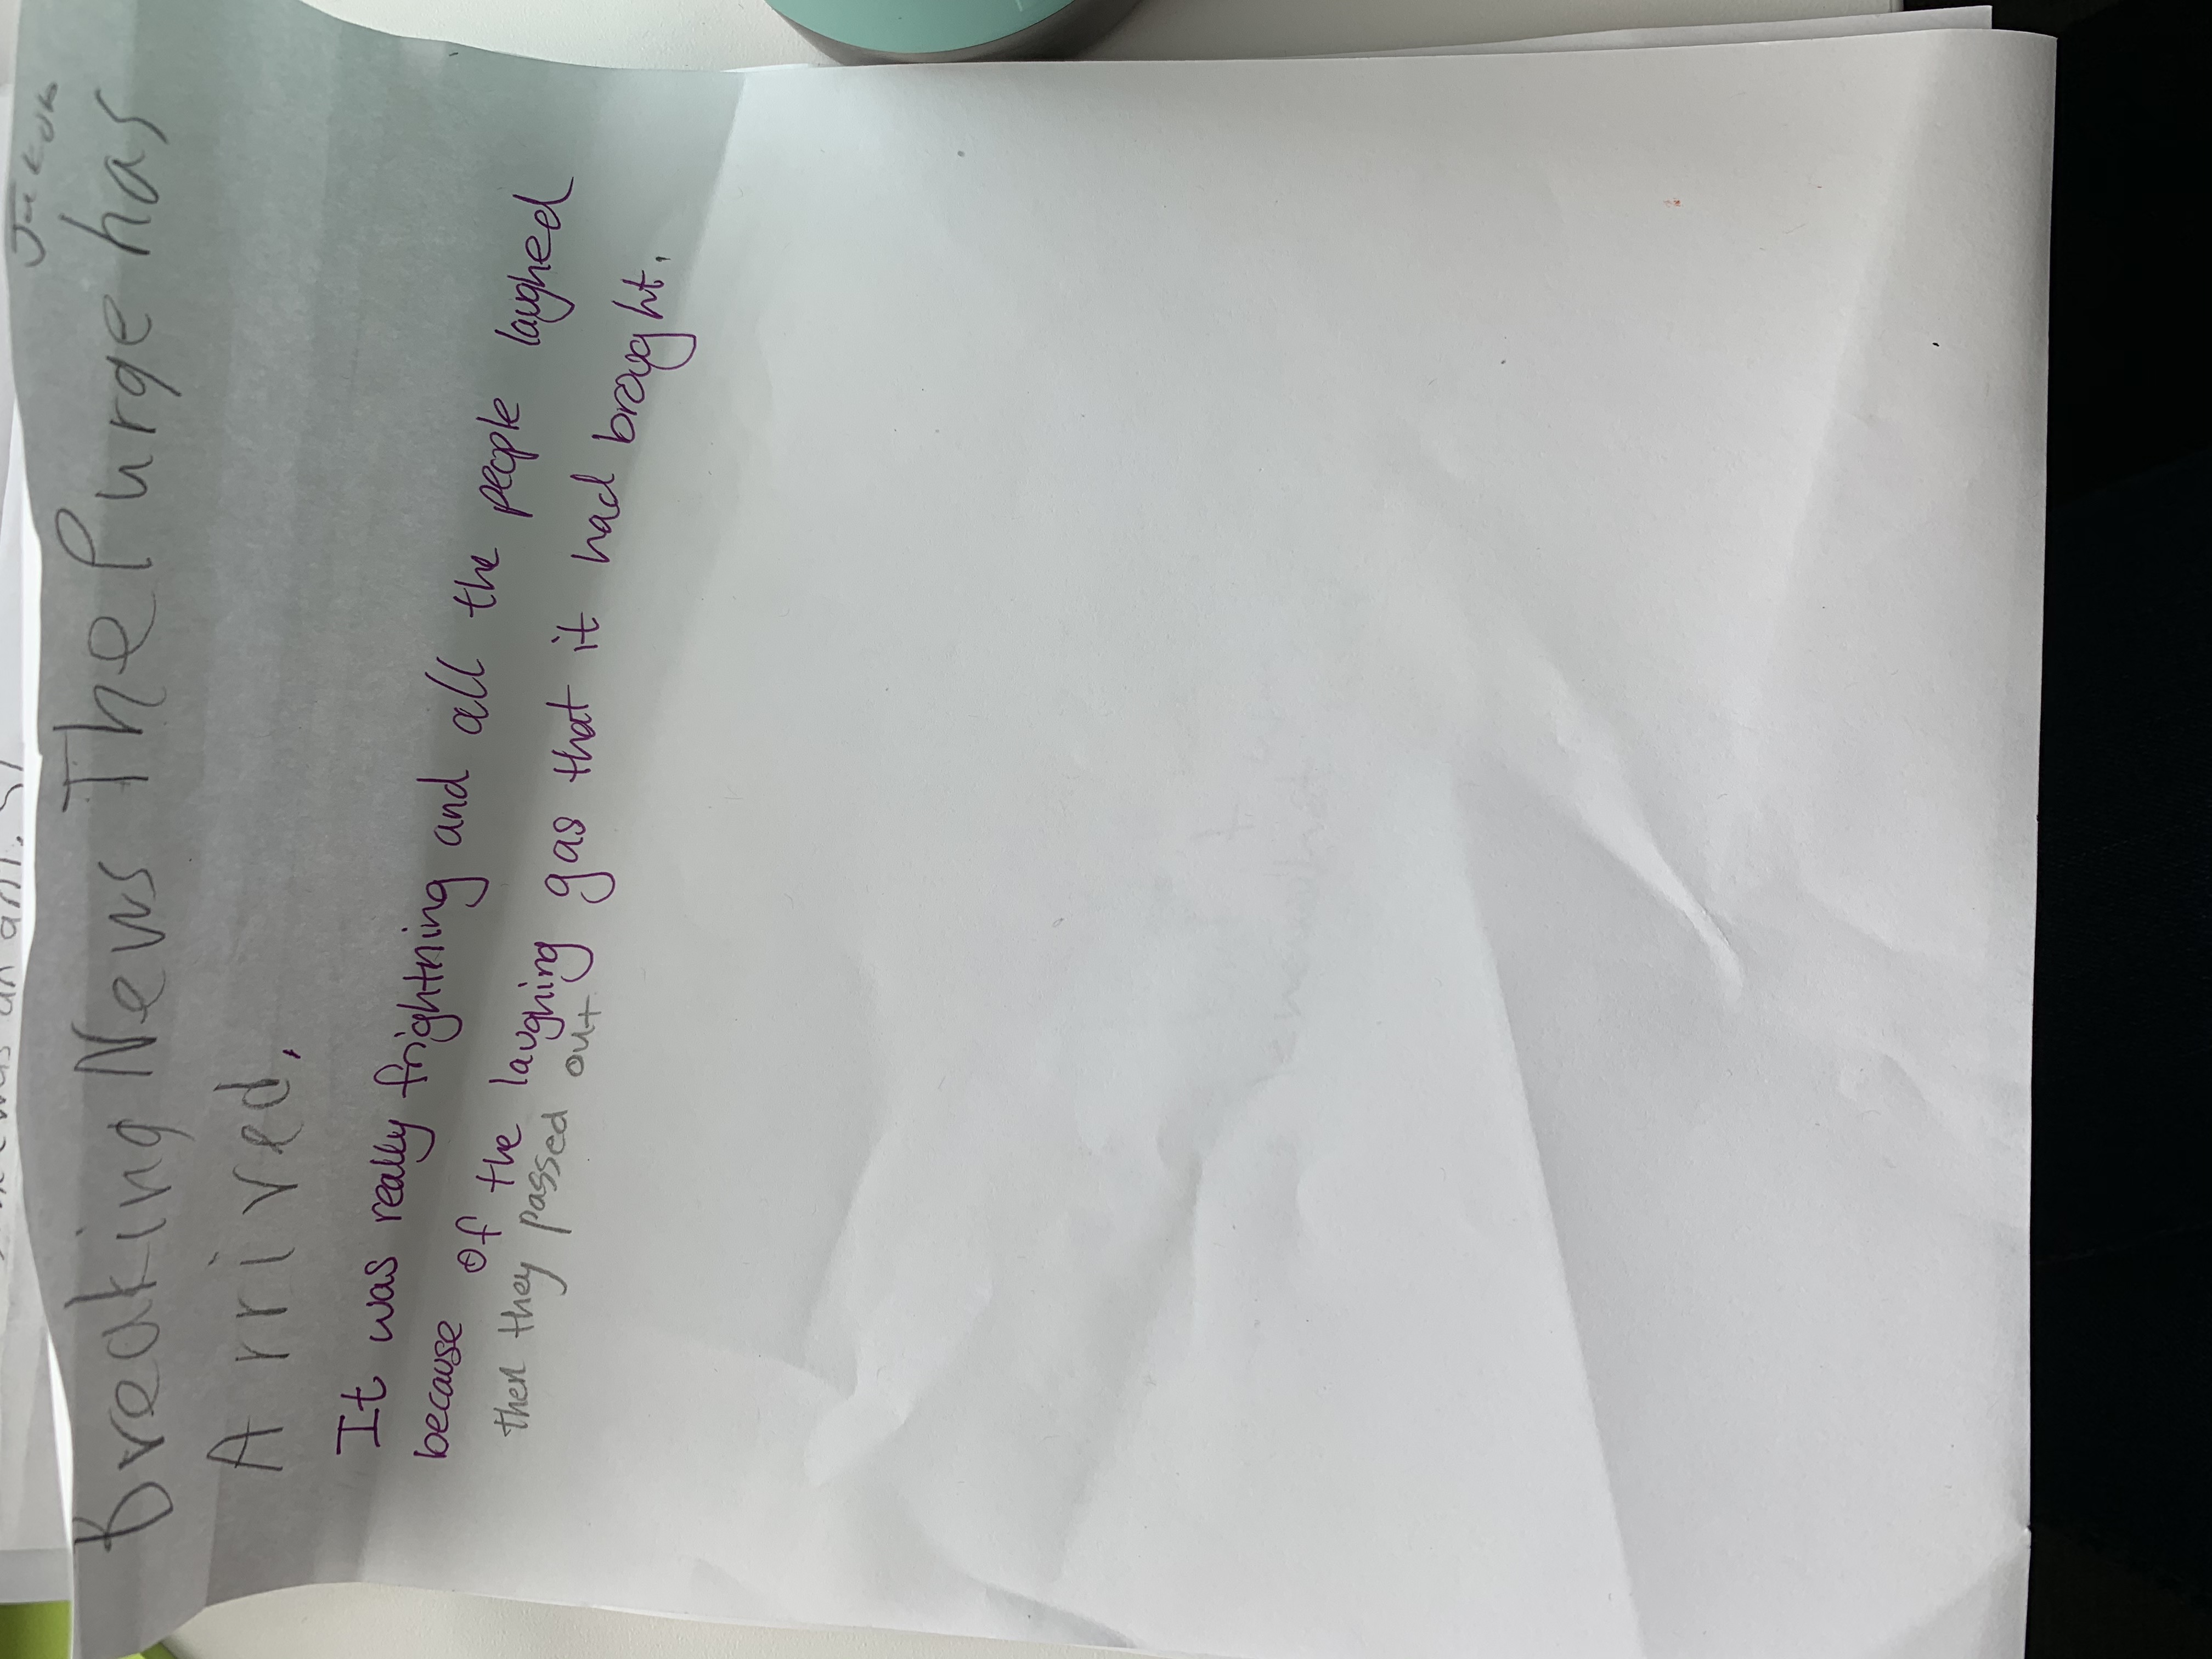 was an ant.
Jakob
Breaking News The Purge has
Arrived.
It was really frightning and all the people laughed
because of the laughing gas that it had brought.
then they passed out